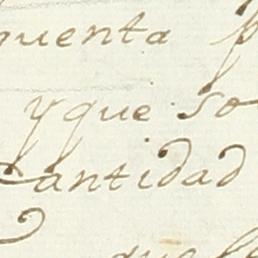 quenta
y que so
Cantidad